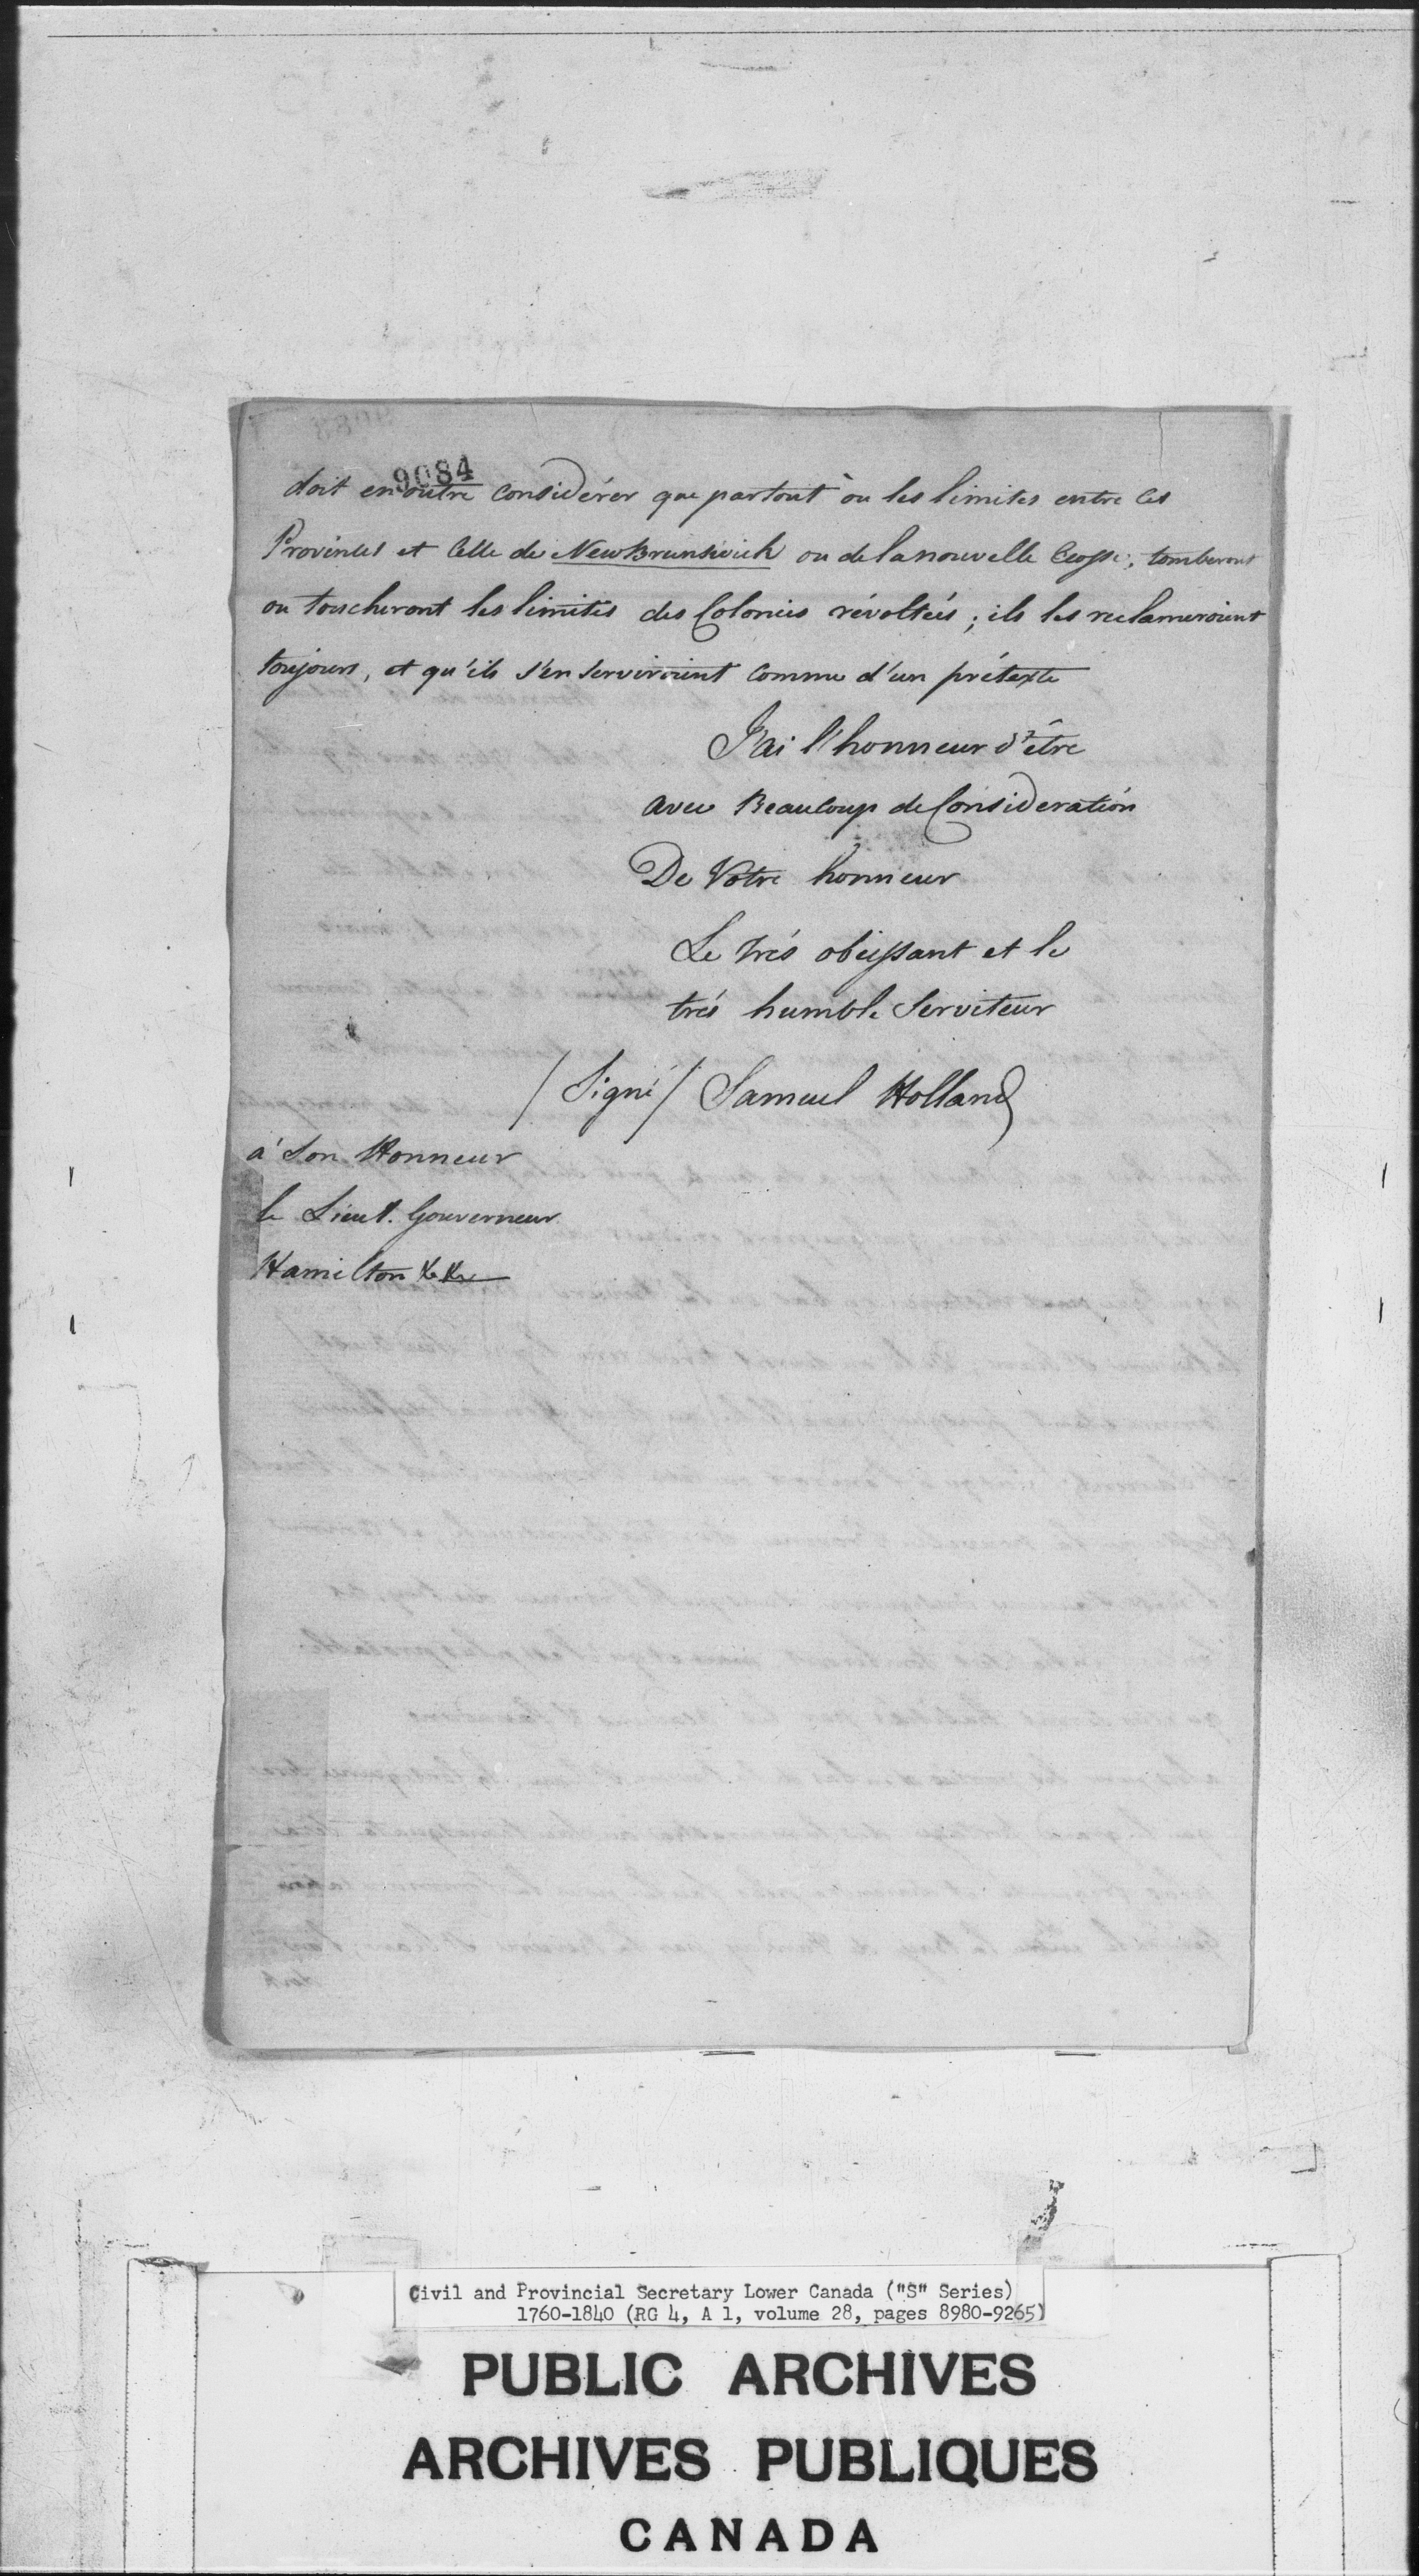 9084
doit en outre considérer que partout ou les limites entre ces
Provinces et Celle de NewBrunswick ou de la nouvelle Ecosse, tomberont
ou toucheront les limites des Colonies révoltées; ils les reclameroient
toujours, et qu'ils s'en serviroient comme d'un prétexte
J'ai l'honneur d'être
avec Beaucoup de Consideration
De Votre honneur
Le trés obeissant et le
trés humble Serviteur
/Signé/ Samuel Holland
à Son Honneur
le Lieut. Gouverneur
Hamilton &c &c
Civil and Provincial Secretary Lower Canada ("S" Series)
1760-1840 (RG 4, A 1, volume 28, pages 8980-9265)
PUBLIC ARCHIVES
ARCHIVES PUBLIQUES
CANADA